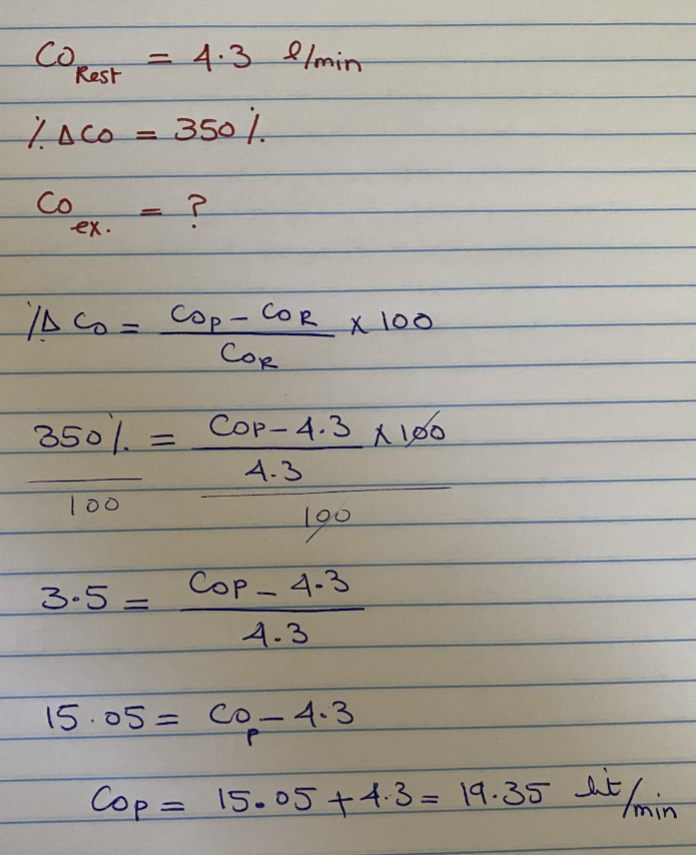 CO Rest = 4.3 l/min
% Δ CO = 350 %.
CO ex. = ?
% Δ CO = COP - COR / COR x 100
350 % / 100 = COP - 4.3 / 4.3 x 100 / 100
3.5 = COP - 4.3 / 4.3
15.05 = COP - 4.3
COP = 15.05 + 4.3 = 19.35 lit/min